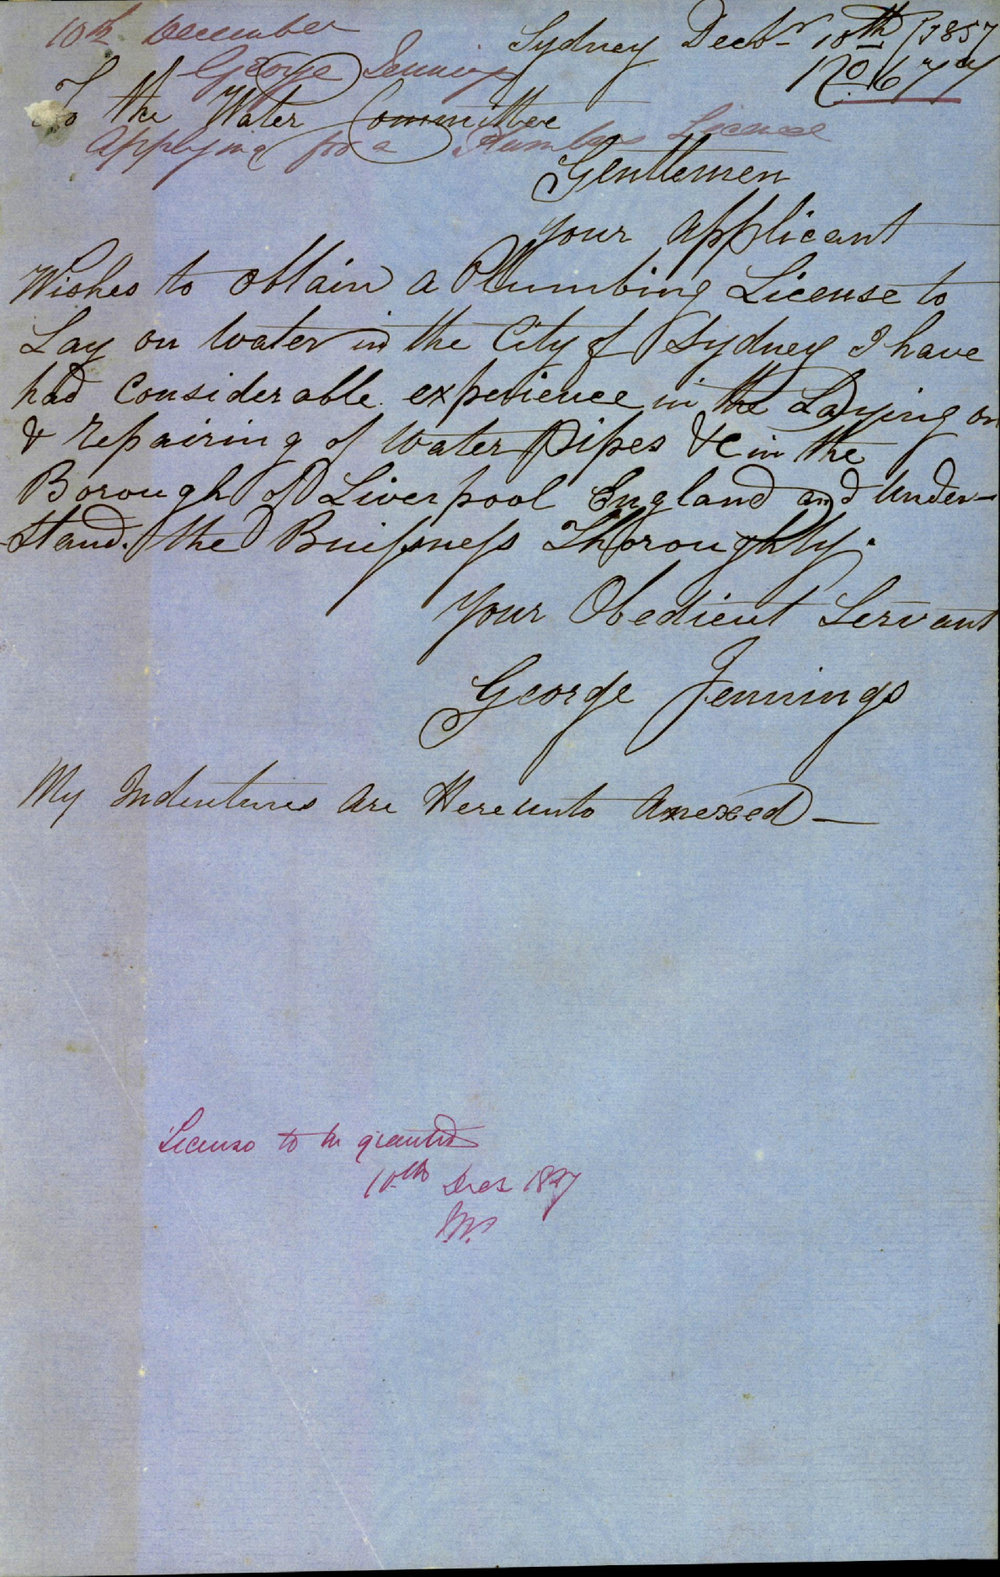 10th December
George Jennings
Applying for a Plumbers License
Sydney Decbr 10th /1857
No. 1677
To the Water Committee
Gentlemen
your applicant
Wishes to obtain a Plumbing License to
Lay on water in the City of Sydney I have
had Considerable experience in the Laying on
& repairing of Water Pipes &c in the
Borough of Liverpool England and Under-
stand. the Buissness Thoroughly.
Your Obedient Servant
George Jennings
My Indentures Are Hereunto Anexed —
License to be granted
10th Decr 1857